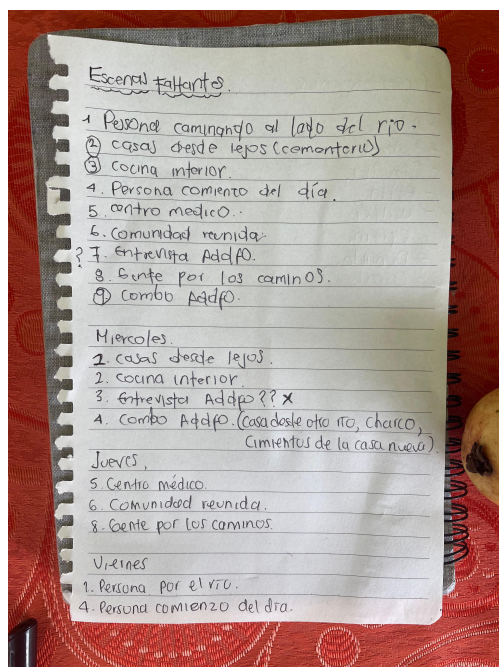 Escenas Faltantes.
1 Persona caminando al lado del río.
2 casas desde lejos (cementerio)
3 cocina interior.
4. Persona comienzo del día.
5. centro medico.
6. Comunidad reunida.
? 7. Entrevista Adolfo.
8. Gente por los caminos.
9 Combo Adolfo.
Miercoles.
1. casas desde lejos.
2. cocina interior.
3. Entrevista Adolfo?? x
4. Combo Adolfo. (casa desde otro río, charco,
Cimientos de la casa nueva)
Jueves,
5. Centro médico.
6. Comunidad reunida.
8. Gente por los caminos.
Viernes
1. Persona por el río.
4. Persona comienzo del día.